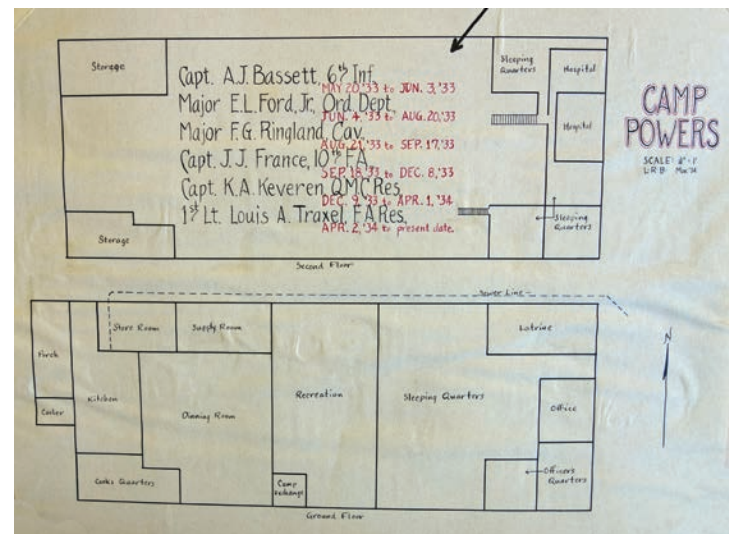 Storage
Capt. A.J. Bassett, 6th Inf.
MAY 20,'33 to JUN. 3,'33
Major E.L. Ford, Jr, Ord. Dept.
JUN. 4,'33 to AUG. 20,'33
Major F.G. Ringland, Cav.
AUG. 21,'33 to SEP. 17,'33
Capt. J.J. France, 10th F.A.
SEP. 18,'33 to DEC. 8,'33
Capt. K.A. Keveren, QMC Res
DEC. 9,'33 to APR. 1,'34
1st Lt. Louis A. Traxel, F.A Res,
APR. 2,'34 to present date.
Storage
Sleeping
Quarters
Hospital
Hospital
Sleeping
Quarters
Second Floor
CAMP
POWERS
SCALE:
L.R.B.
Sewer Line
N
Porch
Cooler
Store Room
Supply Room
Kitchen
Dinning Room
Recreation
Sleeping Quarters
Latrine
Office
Officers
Quarters
Cooks Quarters
Camp
Exchange
Ground Floor